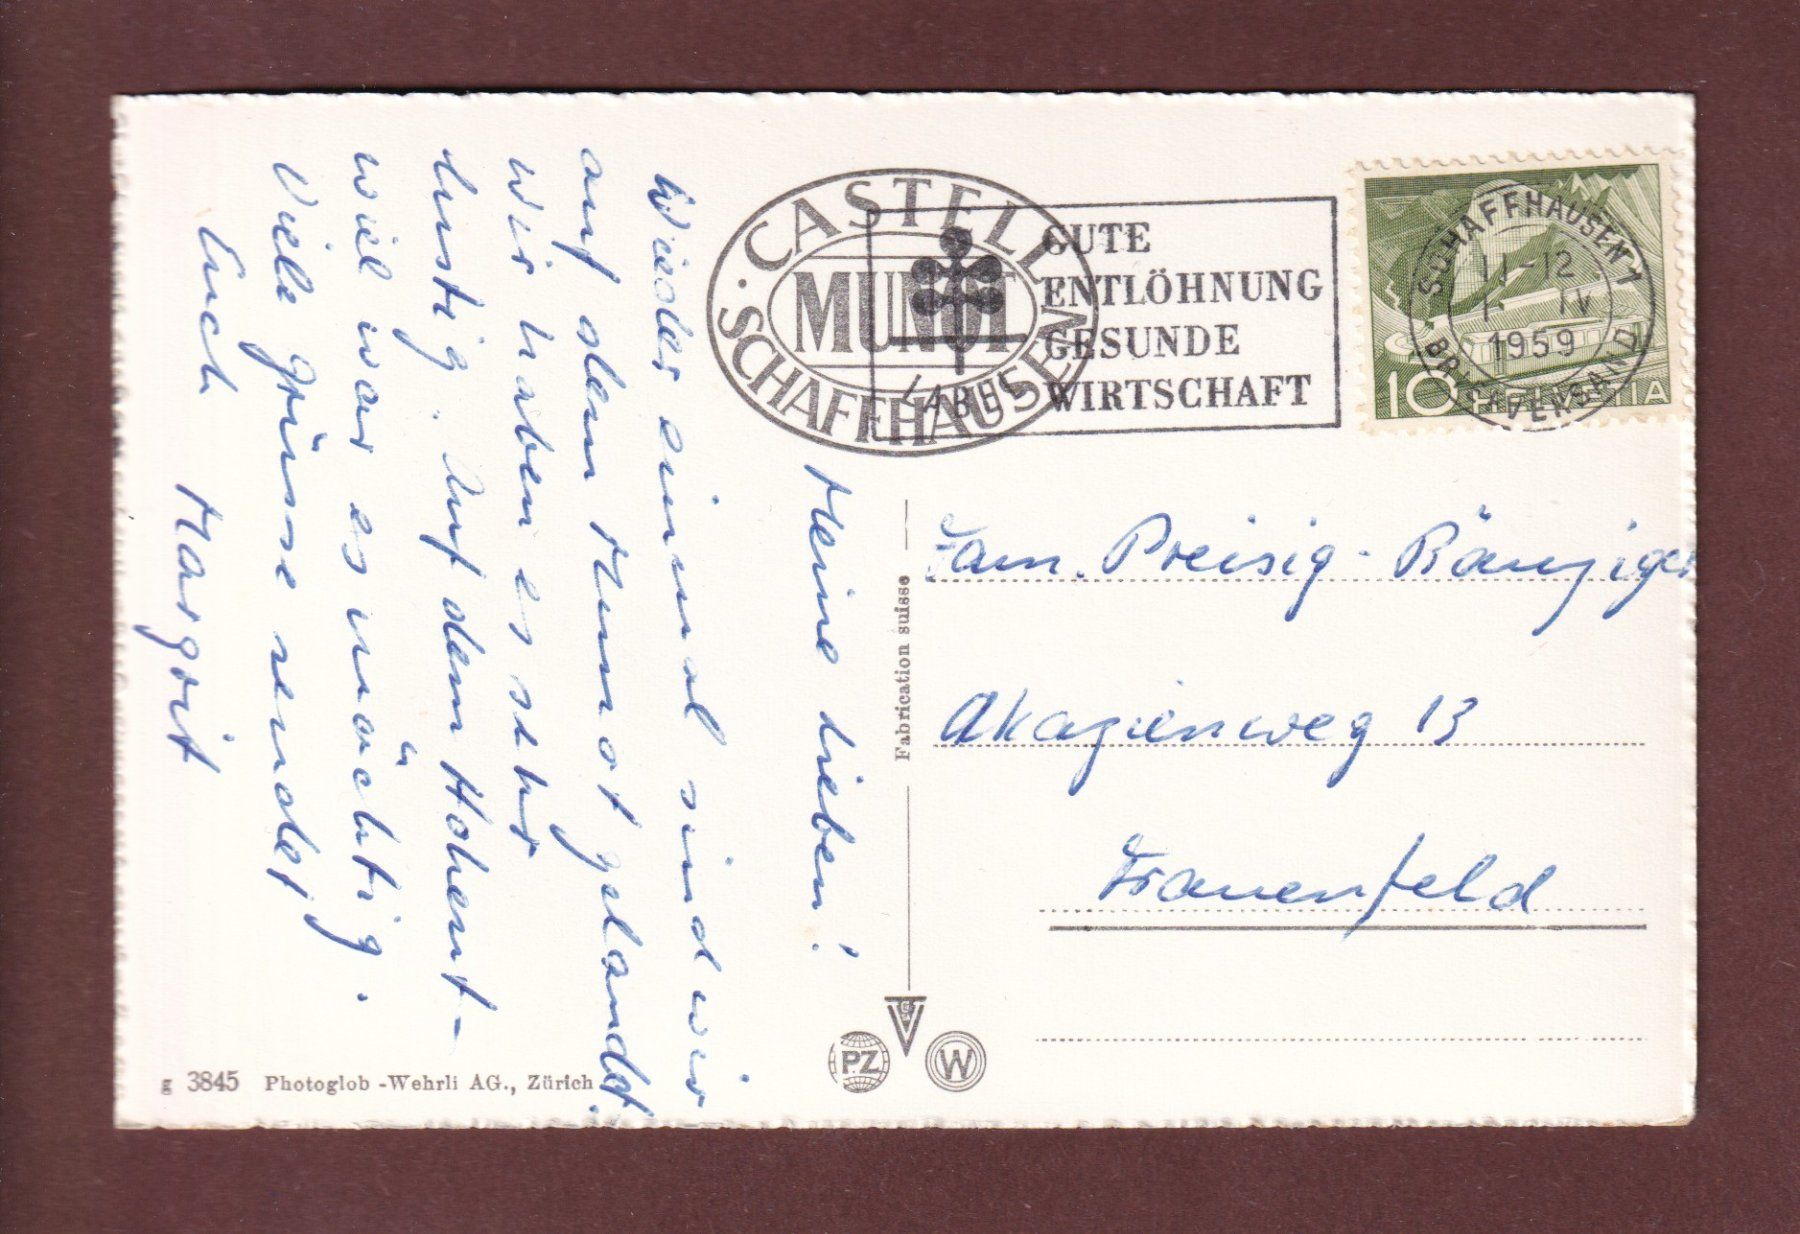 Meine Lieben!
Wieder einmal sind wir
auf dem Munot gelandet.
Wir haben es sehr
lustig. Auf dem Hohent-
wiel war es mächtig.
Viele Grüsse sendet
Euch Margrit
CASTELL
MUNOT
SCHAFFHAUSEN
GUTE
ENTLÖHNUNG
GESUNDE
WIRTSCHAFT
LABEL
SCHAFFHAUSEN 1
11-12
IV
1959
BRIEFVERSAND
10 HELVETIA
Fam. Preisig-Bänziger
Akazienweg 13
Frauenfeld
Fabrication suisse
PZ
W
g 3845 Photoglob-Wehrli AG., Zürich